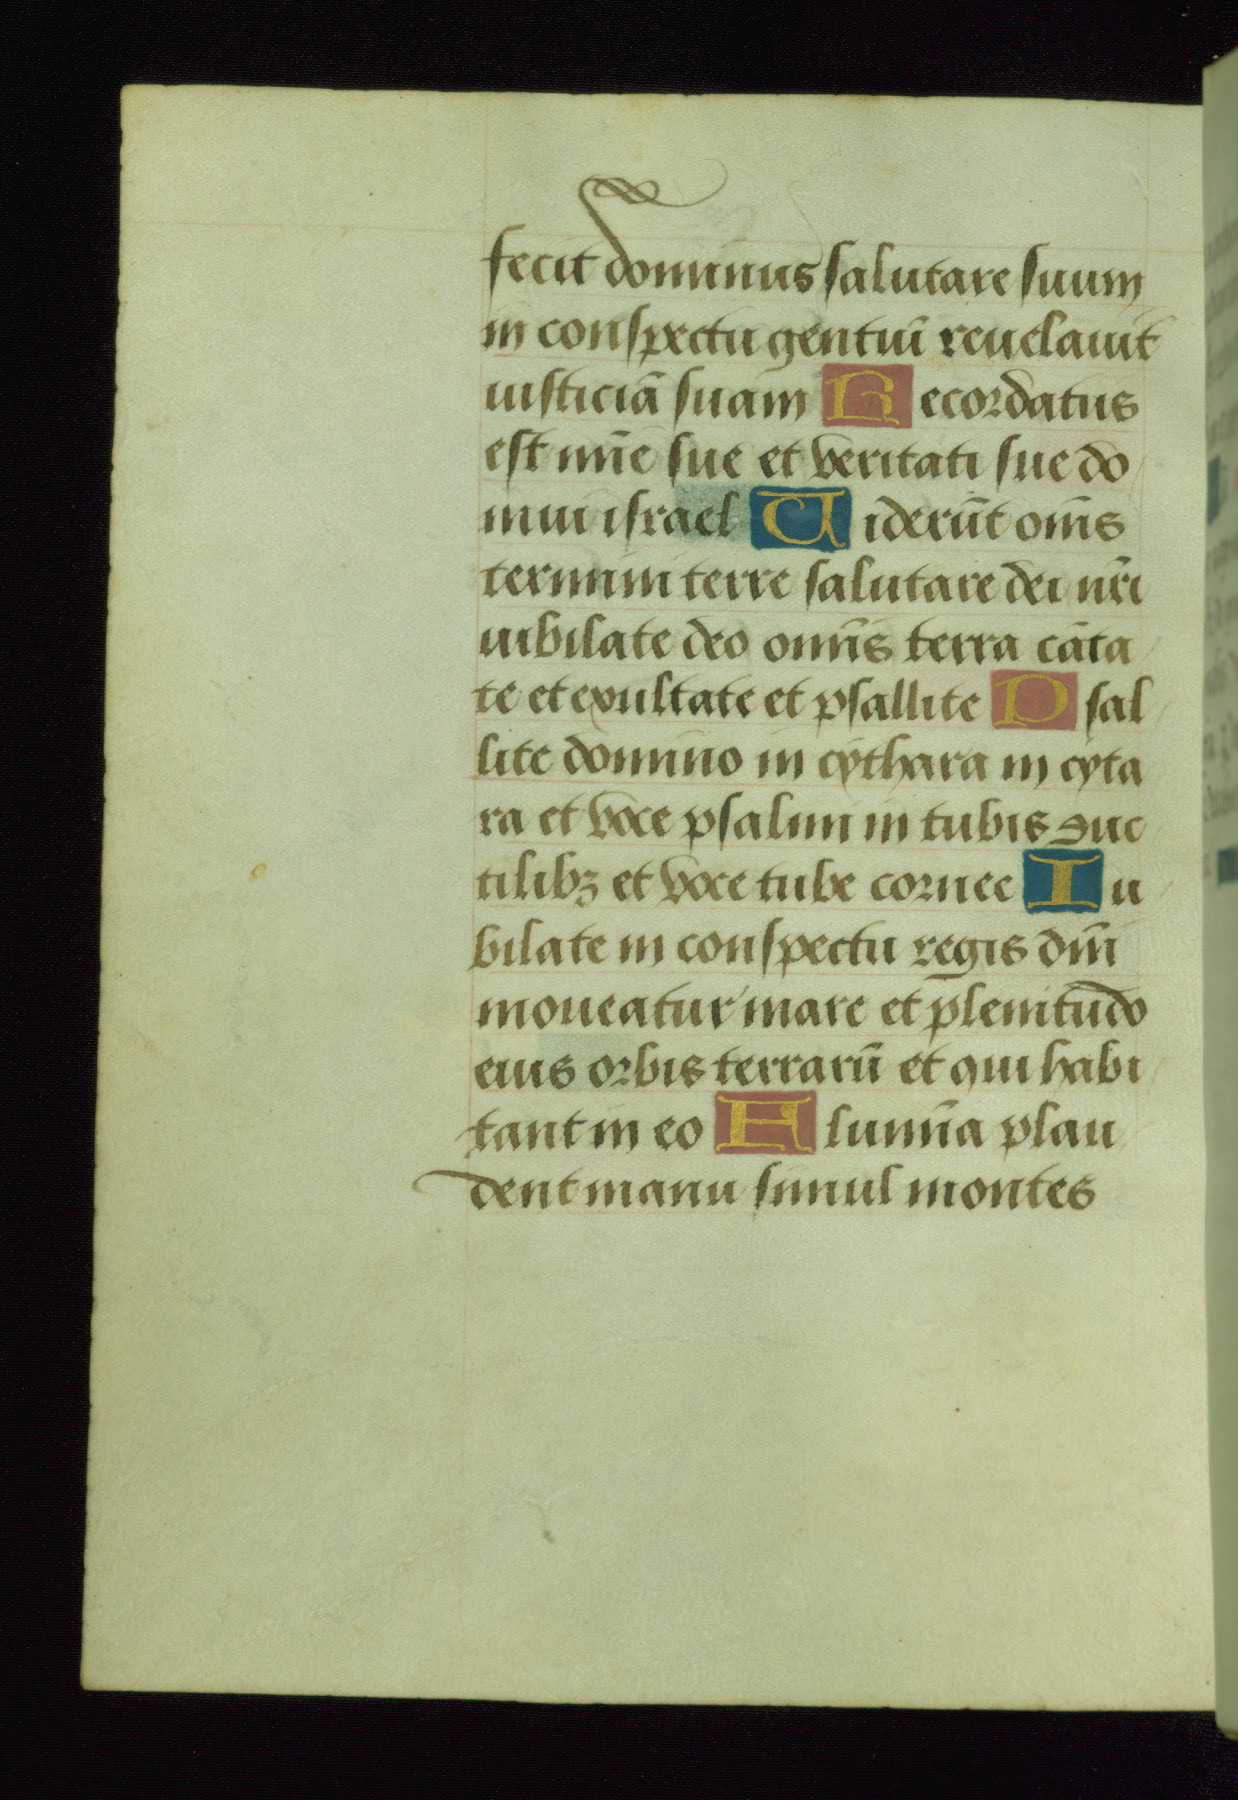 fecit dominus salutare suum
in conspectu gentiũ reuelauit
iusticiã suam Recordatus
est mĩe sue et veritati sue do
mui israel Uiderũt om̃s
termini terre salutare dei nr̃i
iubilate deo omñs terra cãta
te et exultate et psallite Psal
lite domino in cythara in cyta
ra et voce psalmi in tubis duc
tilibꝫ et voce tube cornee Iu
bilate in conspectu regis dñi
moueatur mare et plenitudo
eius orbis terrarũ et qui habi
tant in eo Flumĩa plau
dent manu simul montes